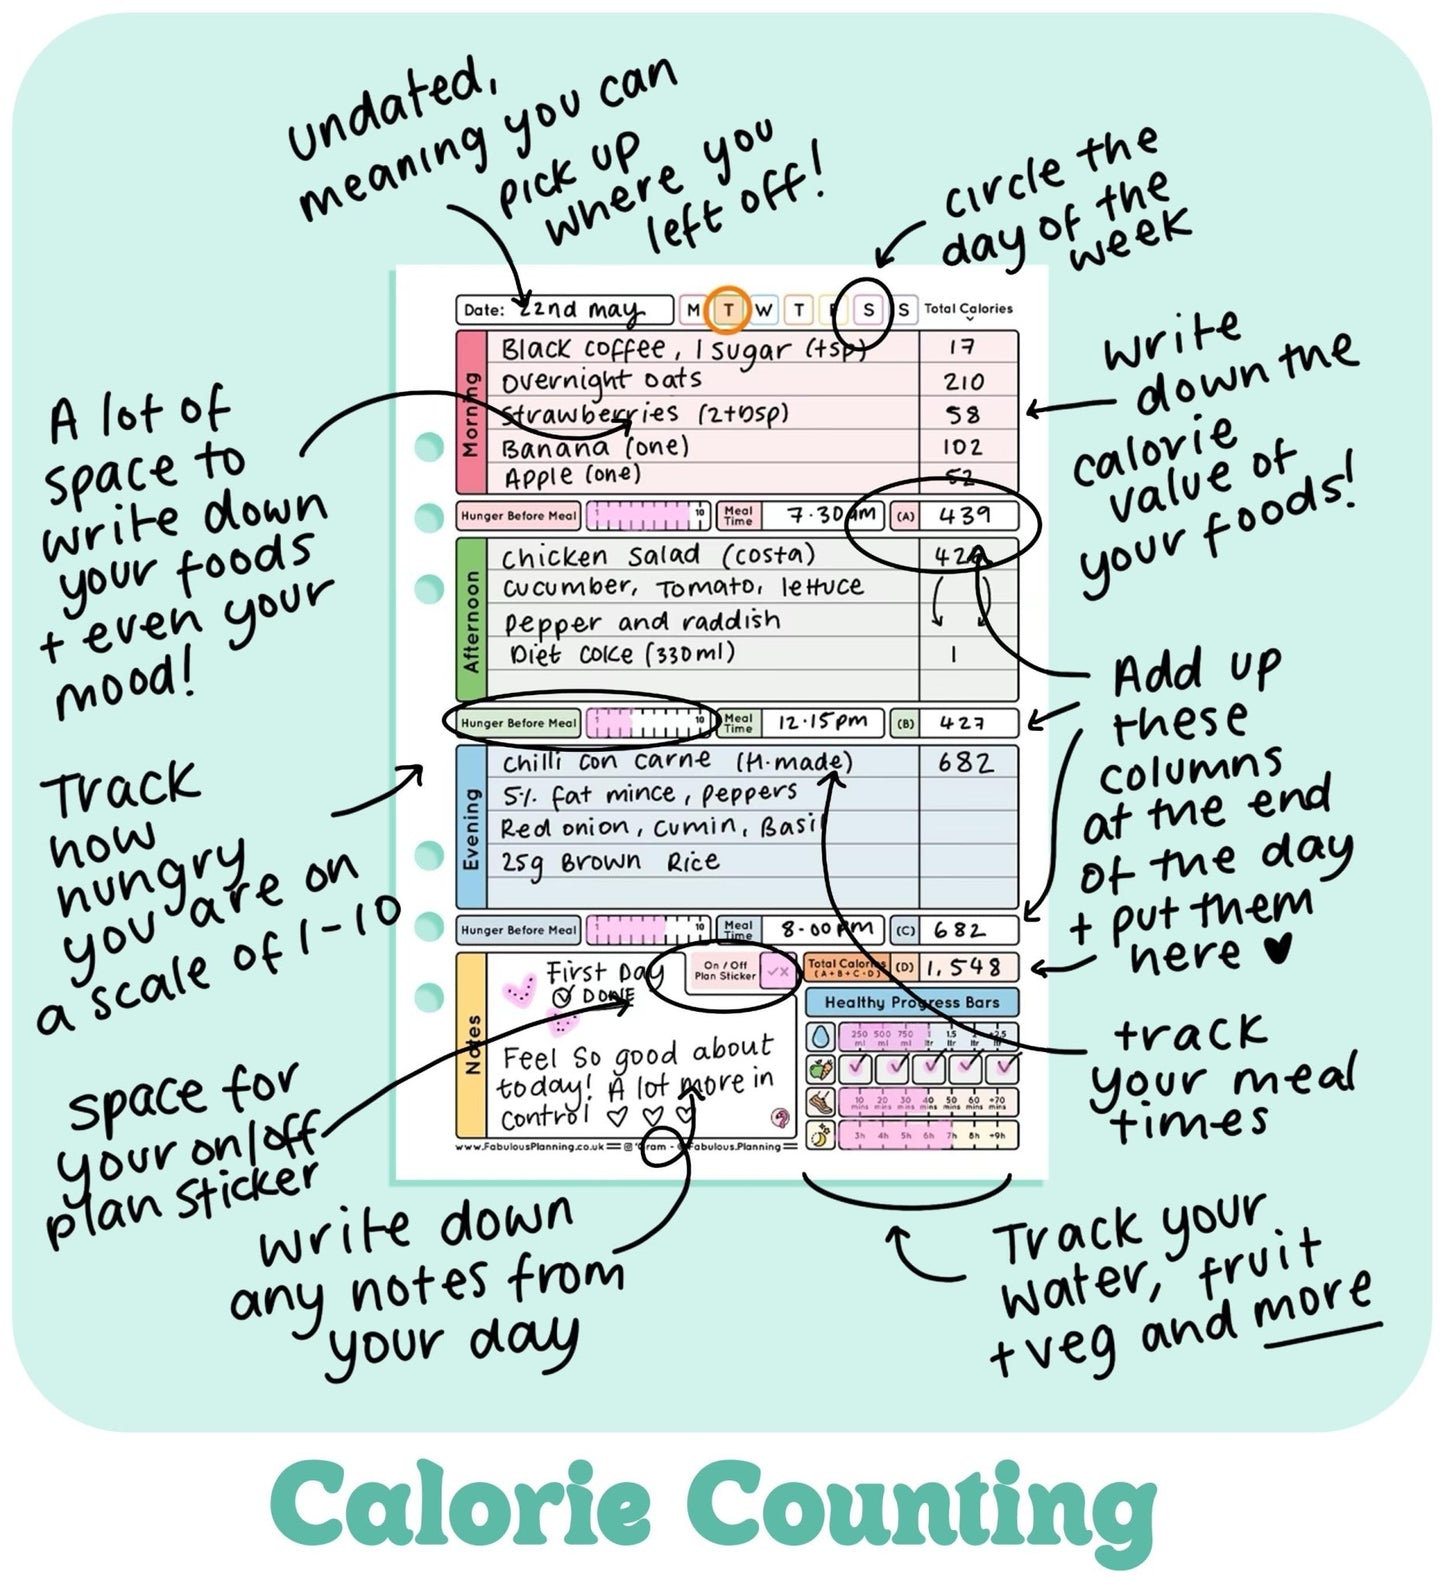 undated,
meaning you can
pick up
where you
left off!
circle the
day of the
week
Date: 22nd may M T W T F S S Total Calories
Morning
Black coffee, 1 sugar (tsp) 17
overnight oats 210
strawberries (2tbsp) 58
Banana (one) 102
Apple (one) 52
Hunger Before Meal 1 10 Meal Time 7.30am (A) 439
Afternoon
chicken salad (costa)
cucumber, Tomato, lettuce
pepper and raddish
Diet coke (330ml) 1
Hunger Before Meal 1 10 Meal Time 12.15pm (B) 427
Evening
chilli con carne (H.made) 682
5% fat mince, peppers
Red onion, cumin, Basil
25g Brown Rice
Hunger Before Meal 1 10 Meal Time 8.00pm (C) 682
Notes
First Day
DONE
On / Off
Plan Sticker
Feel so good about
today! A lot more in
control
Total Calories
(A+B+C=D) (D) 1,548
Healthy Progress Bars
250 ml 500 ml 750 ml 1 ltr 1.5 ltr 2 ltr +2.5 ltr
10 mins 20 mins 30 mins 40 mins 50 mins 60 mins +70 mins
3h 4h 5h 6h 7h 8h +9h
www.FabulousPlanning.co.uk
Fabulous.Planning
A lot of
space to
write down
your foods
+ even your
mood!
write
down the
calorie
value of
your foods!
Track
how
hungry
you are on
a scale of 1-10
Add up
these
columns
at the end
of the day
+ put them
here
space for
your on/off
plan sticker
track
your meal
times
write down
any notes from
your day
Track your
water, fruit
+ veg and more
Calorie Counting